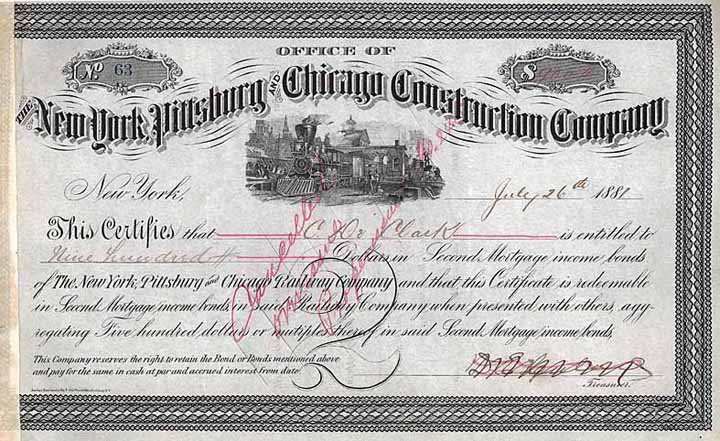 OFFICE OF
No 63
$
THE New York, Pittsburg AND Chicago Construction Company
New York, July 26th 1881
This Certifies that C. Clark is entitled to
Nine hundred Dollars in Second Mortgage income bonds
of The New York, Pittsburg and Chicago Railway Company and that this Certificate is redeemable
in Second Mortgage income bonds in said Railway Company when presented with others, agg-
regating Five hundred dollars or multiples thereof in said Second Mortgage income bonds,
This Company reserves the right to retain the Bond or Bonds mentioned above
and pay for the same in cash at par and accrued interest from date
2
Treasurer.
Cancelled